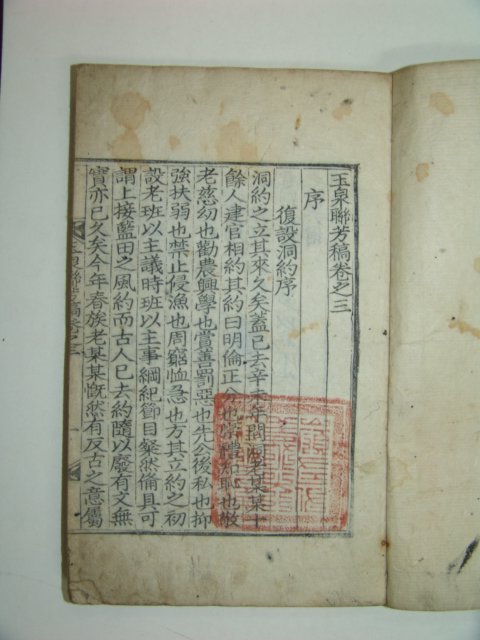 玉泉聯芳稿卷之三
序
復設洞約序
洞約之立其來久矣盖已去辛未年間洞老某某十
餘人建官相約其約曰明倫正分也崇禮知恥也敬
老慈幼也勸農興學也賞善罰惡也先公後私也抑
強扶弱也禁止侵漁也周窮恤急也方其立約之初
設老班以主議時班以主事綱紀節目粲然備具可
謂上接藍田之風約而古人已去約隨以廢有文無
實亦已久矣今年春族老某某慨然有反古之意屬